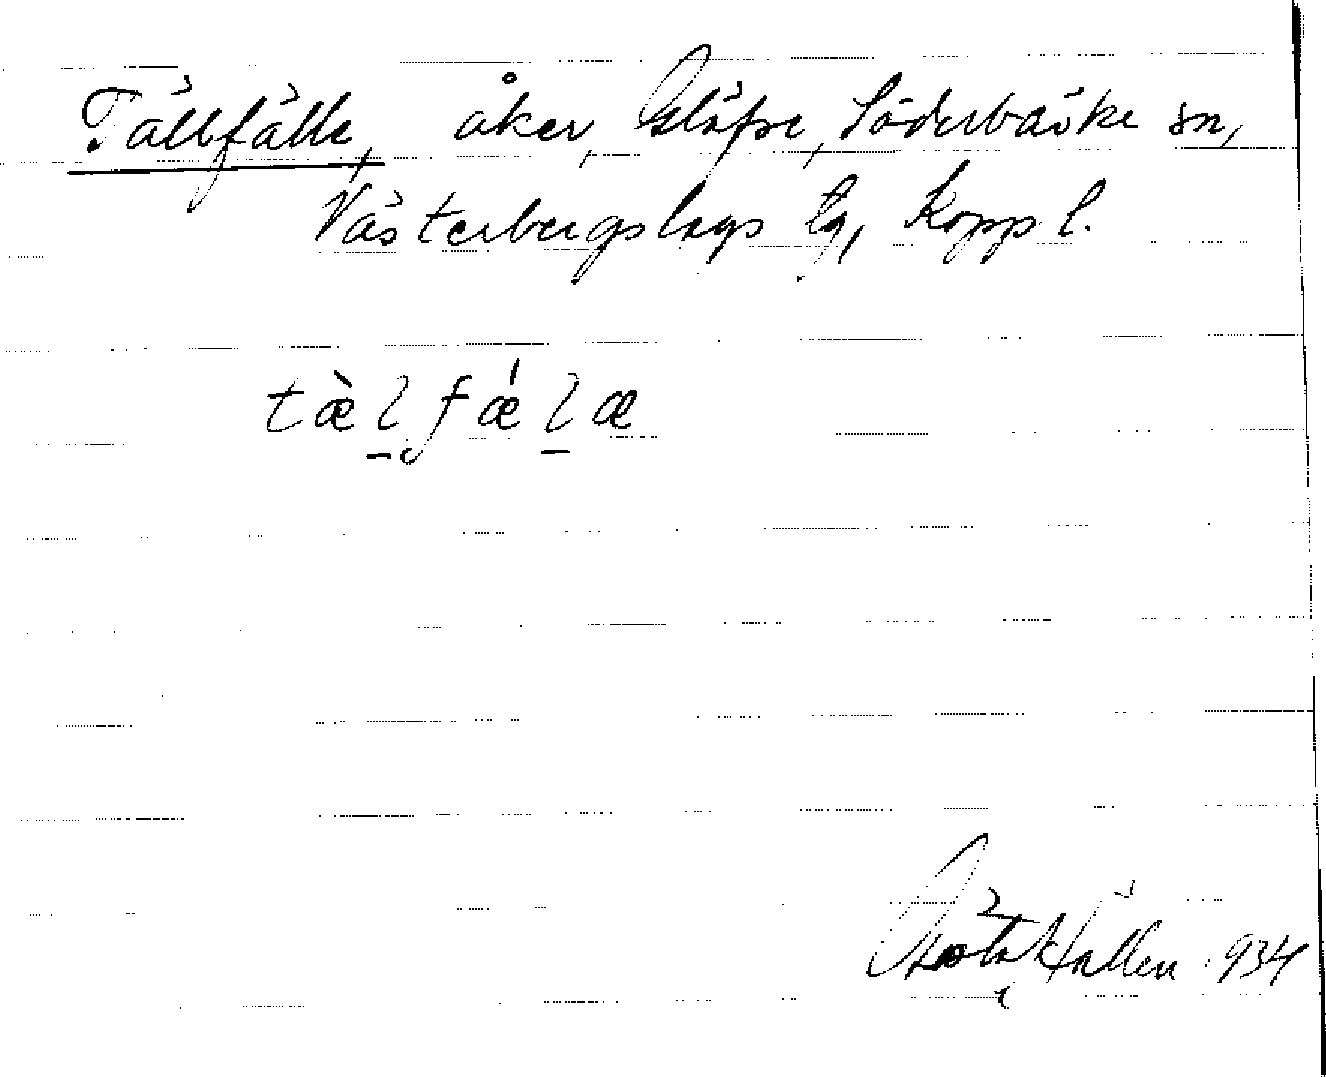 Tällfälle, åker, Gläfse, Söderbärke sn,
Västerbergslags tg, Kopp l.
tæ̀l fǽlæ
Gösta Hallen 934